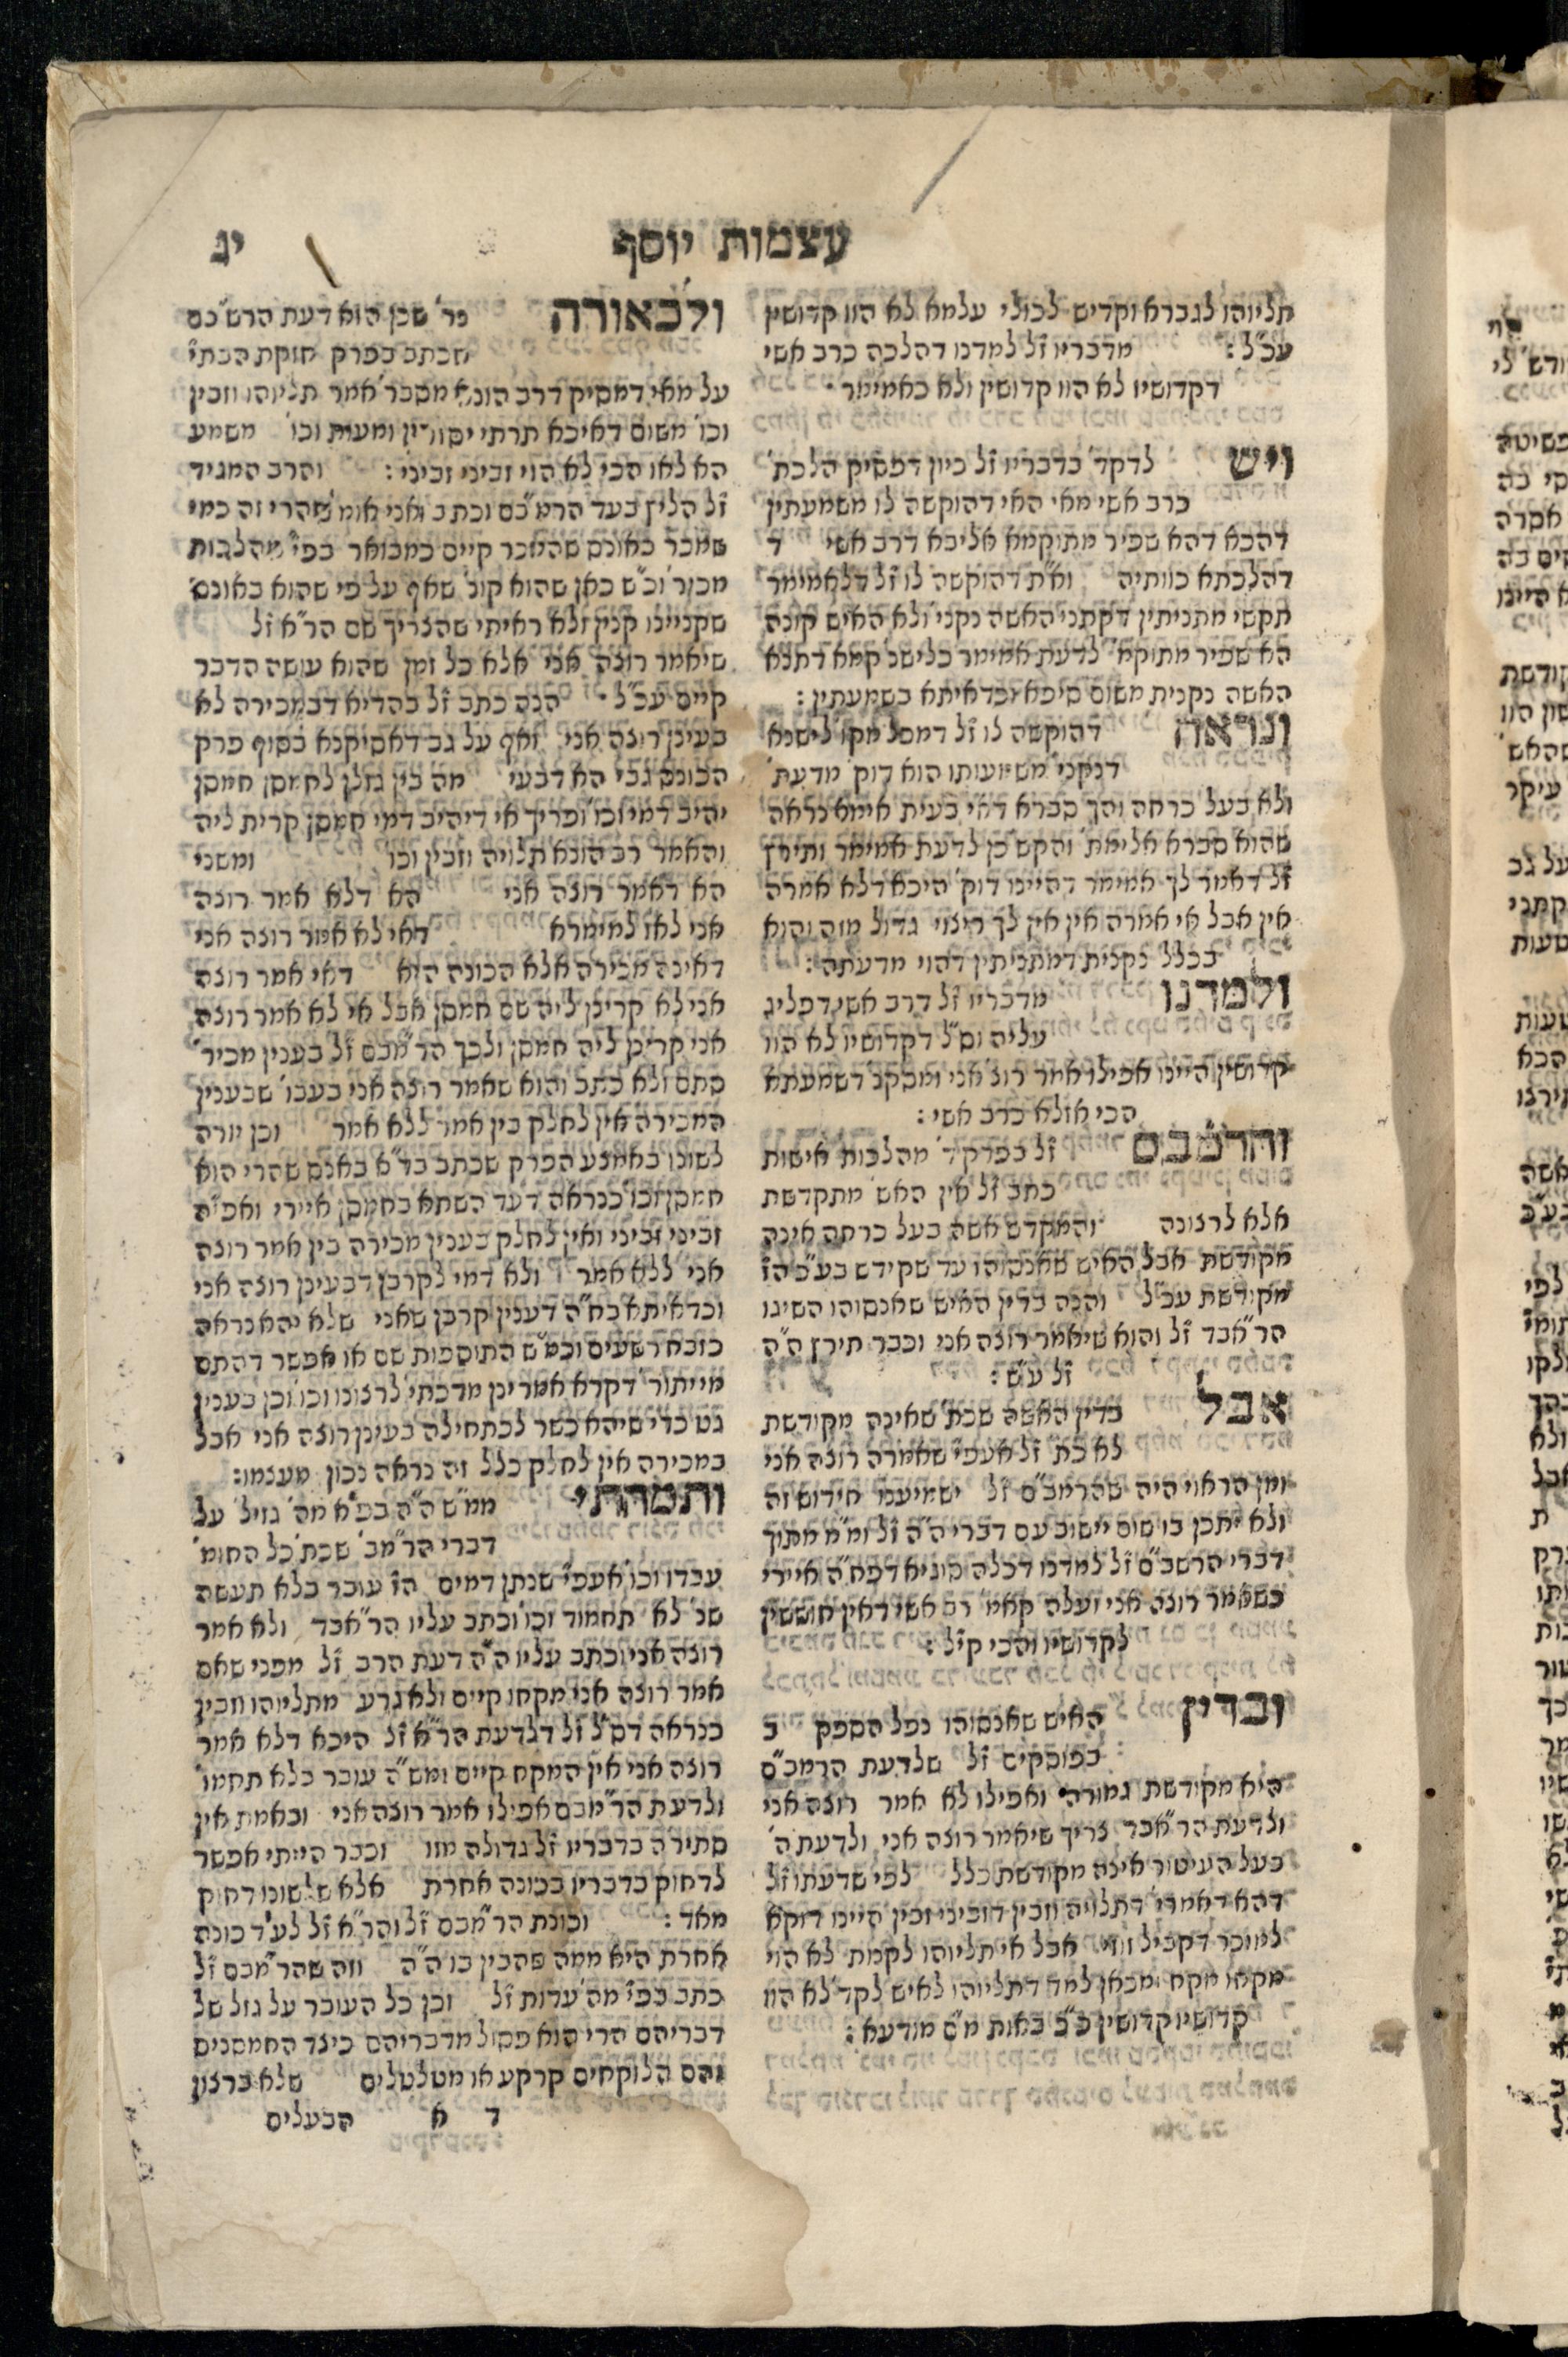 עצמות יוסף
יג
תליוהו לגברא וקדיש לכולי עלמא לא הוו קדושין
עכ"ל : מדבריו ז"ל למדנו דהלכה כרב אשי
דקדושיו לא הוו קדושין ולא כאמימר .
ויש לדקד' בדבריו ז"ל כיון דפסיק הלכת'
כרב אשי מאי האי דהוקשה לו משמעתין
דהכא דהא שפיר מתוקמא אליבא דרב אשי ד
דהלכתא כוותיה וא"ת דהוקשה לו ז"ל דלאמימר
תקשי מתניתין דקתני האשה נקני' ולא האיש קונה
הא שפיר מתוקמא לדעת אמימר כליש' קמא דתנא
האשה נקנית משום סיפא וכדאיתא בשמעתין :
ונראה דהוקשה לו ז"ל דמסל' מקו' לישנא
דנקני' משמעותו הוא דוק' מדעת'
ולא בעל כרחה והך סברא דאי בעית אימא נראה
שהוא סברא אלימת' והקש' כן לדעת אמימר ותירץ
ז"ל דאמר לך אמימר דהיינו דוק' היכא דלא אמרה
אין אבל אי אמרה אין אין לך ריצוי גדול מזה והוא
בכלל נקנית דמתניתין דהוי מדעתה :
ולמדנו מדבריו ז"ל דרב אשי דפליג
עליה וס"ל דקדושיו לא הוו
קדושין היינו אפילו אמר רוצ' אני ומסקנ' דשמעתא
הכי אזלא כרב אשי :
והרמב"ם ז"ל בפרק ד' מהלכות אישות
כתב ז"ל אין האש' מתקדשת
אלא לרצונה והמקדש אשה בעל כרחה אינה
מקודשת אבל האיש שאנסוהו עד שקידש בע"כ ה"ז
מקודשת עכ"ל והנה בדין האיש שאנסוהו השיגו
הר"אבד ז"ל והוא שיאמר רוצה אני וכבר תירץ ה"ה
ז"ל ע"ש :
אבל בדין האשה שכת' שאינה מקודשת
לא כת' ז"ל אעפ"י שאמרה רוצה אני
ומן הראוי היה שהרמב"ם ז"ל ישמיענו חידוש זה
ולא יתכן בו שום יישוב עם דברי ה"ה ז"ל ומ"מ מתוך
דברי הרשב"ם ז"ל למדנו דכלה סוגיא דפח"ה איירי
כשאמר רוצה אני ועלה קאמ' רב אשי דאין חוששין
לקדושיו והכי קי"ל :
ובדין האיש שאנסוהו נפל הספק ב
בפוסקים ז"ל שלדעת הרמב"ם
היא מקודשת גמורה ואפילו לא אמר רוצה אני
ולדעת הר"אבד צריך שיאמר רוצה אני ולדעת ה'
בעל העיטור אינה מקודשת כלל לפי שדעתו ז"ל
דהא דאמרי' דתלויה וזבין דזביני זבין היינו דוקא
למוכר דקביל זוזי אבל אי תליוהו לקנות לא הוי
מקחו מקח ומכאן למד דתליוהו לאיש לקד' לא הוו
קדושיו קדושין כ"כ באות מ"ם מודעא :
ולכאורה נר' שכן הוא דעת הרש"בם
שכתב בפרק חזקת הבתי'
על מאי דמסיק דרב הונא מסבר' אמר תליוהו וזבין
וכו' משום דאיכא תרתי יסורין ומעות וכו' משמע
הא לאו הכי לא הוי זביני זביני : והרב המגיד
ז"ל הליץ בעד הרמ"בם וכתב ואני אומ' שהרי זה כמי
שמכר באונס שהמכר קיים כמבואר בפ"י מהלכות
מכיר' וכ"ש כאן שהוא קונ' שאף על פי שהוא באונס
שקניינו קנין ולא ראיתי שהצריך שם הר"א ז"ל
שיאמר רוצה אני אלא כל זמן שהוא עושה הדבר
קיים עכ"ל . הנה כתב ז"ל בהדיא דבמכירה לא
בעינן רוצה אני ואף על גב דאסיקנא בסוף פרק
הכונס גבי הא דבעי מה בין גזלן לחמסן חמסן
יהיב דמי וכו' ופריך אי דיהיב דמי חמסן קרית ליה
והאמר רב הונא תלויה וזבין וכו' ומשני
הא דאמר רוצה אני הא דלא אמר רוצה
אני לאו למימרא דאי לא אמר רוצה אני
דאינה מכירה אלא הכונה הוא דאי אמר רוצה
אני לא קרינן ליה שם חמסן אבל אי לא אמר רוצה
אני קרינן ליה חמסן ולכך הר"מבם ז"ל בענין מכיר'
סתם ולא כתב והוא שאמר רוצה אני בעבו' שבענין
המכירה אין לחלק בין אמר ללא אמר וכן יורה
לשונו באמצע הפרק שכתב בד"א באנס שהרי הוא
חמסן וכו' כנראה דעד השתא בחמסן איירי ואפ"ה
זביני זביני ואין לחלק בענין מכירה בין אמר רוצה
אני ללא אמר ולא דמי לקרבן דבעינן רוצה אני
וכדאיתא בח"ה דענין קרבן שאני שלא יהא נראה
כזבח רשעים וכמ"ש התוספות שם או אפשר דהתם
מייתור' דקרא אמרינן מדכתי' לרצונו וכו' וכן בענין
גט כדי שיהא כשר לכתחילה בעינן רוצה אני אבל
במכירה אין לחלק כלל זה נראה נכון מעצמו :
ותמהתי ממ"ש ה"ה בפ"א מה' גזיל' על
דברי הר"מב' שכת' כל החומ'
עבדו וכו' אעפ"י שנתן דמים ה"ז עובר בלא תעשה
שנ' לא תחמוד וכו' וכתב עליו הר"אבד ולא אמר
רוצה אני וכתב עליו ה"ה דעת הרב ז"ל מפני שאם
אמר רוצה אני מקחו קיים ולא גרע מתליוהו וזבין
כנראה דס"ל ז"ל דלדעת הר"א ז"ל היכא דלא אמר
רוצה אני אין המקח קיים ומש"ה עובר בלא תחמו'
ולדעת הר"מבם אפילו אמר רוצה אני ובאמת אין
סתירה בדבריו ז"ל גדולה מזו וכבר הייתי אפשר
לדחוק בדבריו בכונה אחרת אלא שלשונו דחוק
מאד : וכונת הר"מבם ז"ל והר"א ז"ל לע"ד כונה
אחרת היא ממה שהבין בו ה"ה וזה שהר"מבם ז"ל
כתב בפ"י מה' עדות ז"ל וכן כל העובר על גזל של
דבריהם הרי הוא פסול מדבריהם כיצד החמסנים
והם הלוקחים קרקע או מטלטלים שלא ברצון
ד א הבעלים